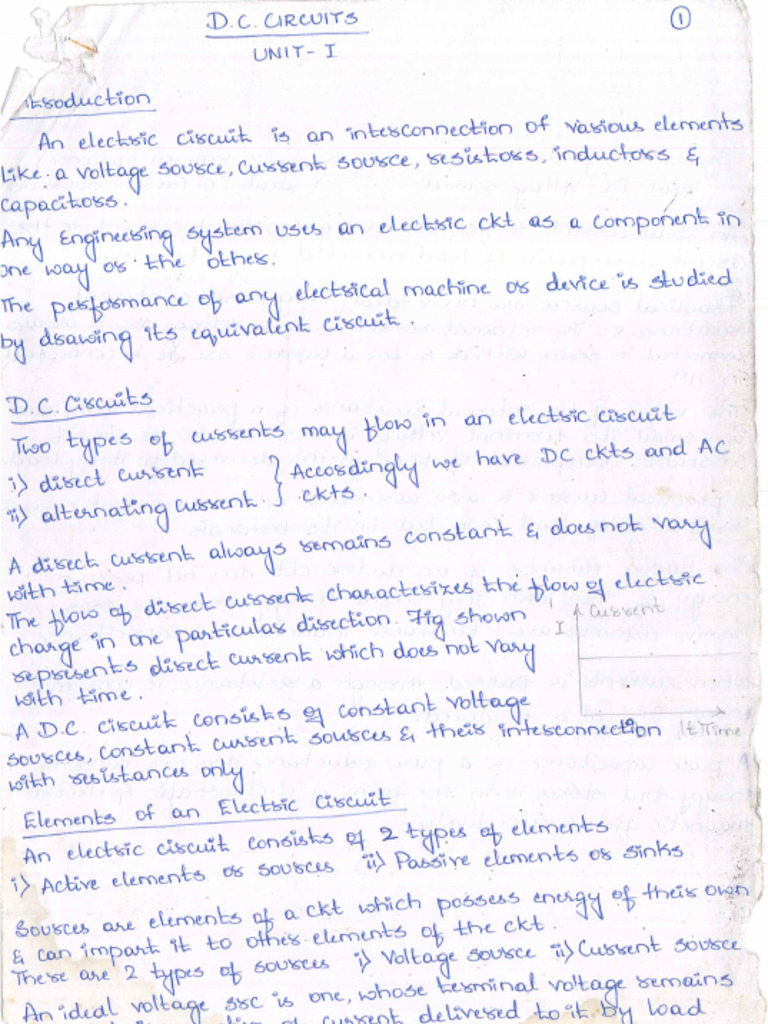 D.C. CIRCUITS
1
UNIT-I
Introduction
An electric circuit is an interconnection of various elements
like a voltage source, current source, resistors, inductors &
capacitors.
Any Engineering system uses an electric ckt as a component in
one way or the other.
The performance of any electrical machine or device is studied
by drawing its equivalent circuit.
D.C. Circuits
Two types of currents may flow in an electric circuit
i) direct current } Accordingly we have DC ckts and AC
ii) alternating current ckts
A direct current always remains constant & does not vary
with time.
The flow of direct current characterizes the flow of electric
charge in one particular direction. Fig shown
represents direct current which does not vary
with time.
Current
I
t Time
A D.C. circuit consists of constant voltage
sources, constant current sources & their interconnection
with resistances only
Elements of an Electric Circuit
An electric circuit consists of 2 types of elements
i) Active elements or sources ii) Passive elements or sinks
Sources are elements of a ckt which possess energy of their own
& can impart it to other elements of the ckt.
There are 2 types of sources i) Voltage source ii) Current source
An ideal voltage src is one, whose terminal voltage remains
of current delivered to it by load